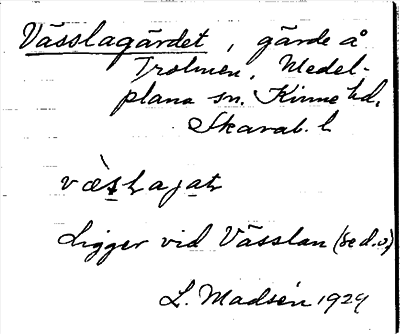 Vässlagärdet, gärde å
Trolmen, Medel-
plana sn. Kinne hd,
Skarab. l
væ̀slajaṭ
Ligger vid Vässlan (se d.o.)
L. Madsén 1929